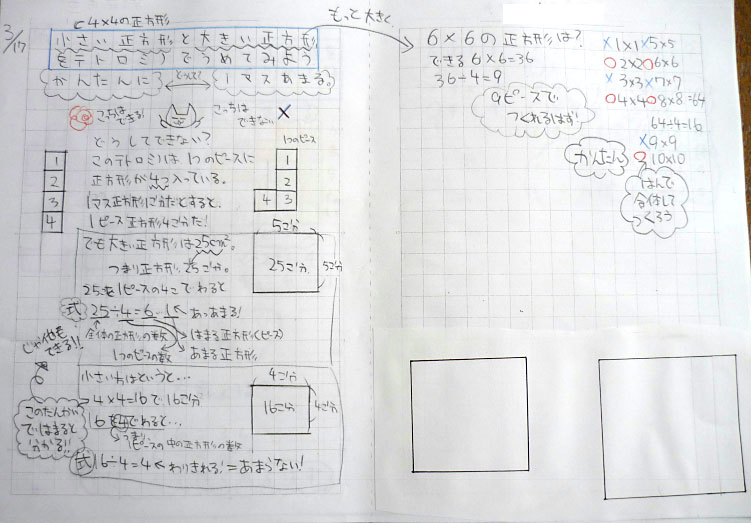 3/17
4×4の正方形
小さい正方形と大きい正方形
をテトロミノでうめてみよう
かんたんに?
1マスあまる。
こっちは
できる!
こっちは
できない
×
どうしてできない?
1つのピース
このテトロミノは1つのピースに
正方形が4つ入っている。
1マス正方形1こ分だとすると、
1ピース正方形4こ分だ!
1
2
3
4
1
2
4 3
でも大きい正方形は25cm²。
つまり正方形25こ分。
25を1ピースの4こでわると
5こ分
25こ分
5こ分
式 25÷4=6…1
あっあまる!
全体の正方形の数
はまる正方形(ピース)
1つのピースの数
あまる正方形
じゃ他も
できる!!
このたんかい
ではまると
分かる!!
小さい方はというと…
4×4=16で16こ分
16を4でわると…
つまり
1ピースの中の正方形の数
4こ分
16こ分
4こ分
式 16÷4=4
わりきれる!=あまらない!
もっと大きく
6×6の正方形は?
できる 6×6=36
36÷4=9
9ピースで
つくれるはず!
×1×1 ×5×5
○2×2 ○6×6
×3×3 ×7×7
○4×4 ○8×8=64
64÷4=16
×9×9
○10×10
かんたん
はんで
合体して
つくろう